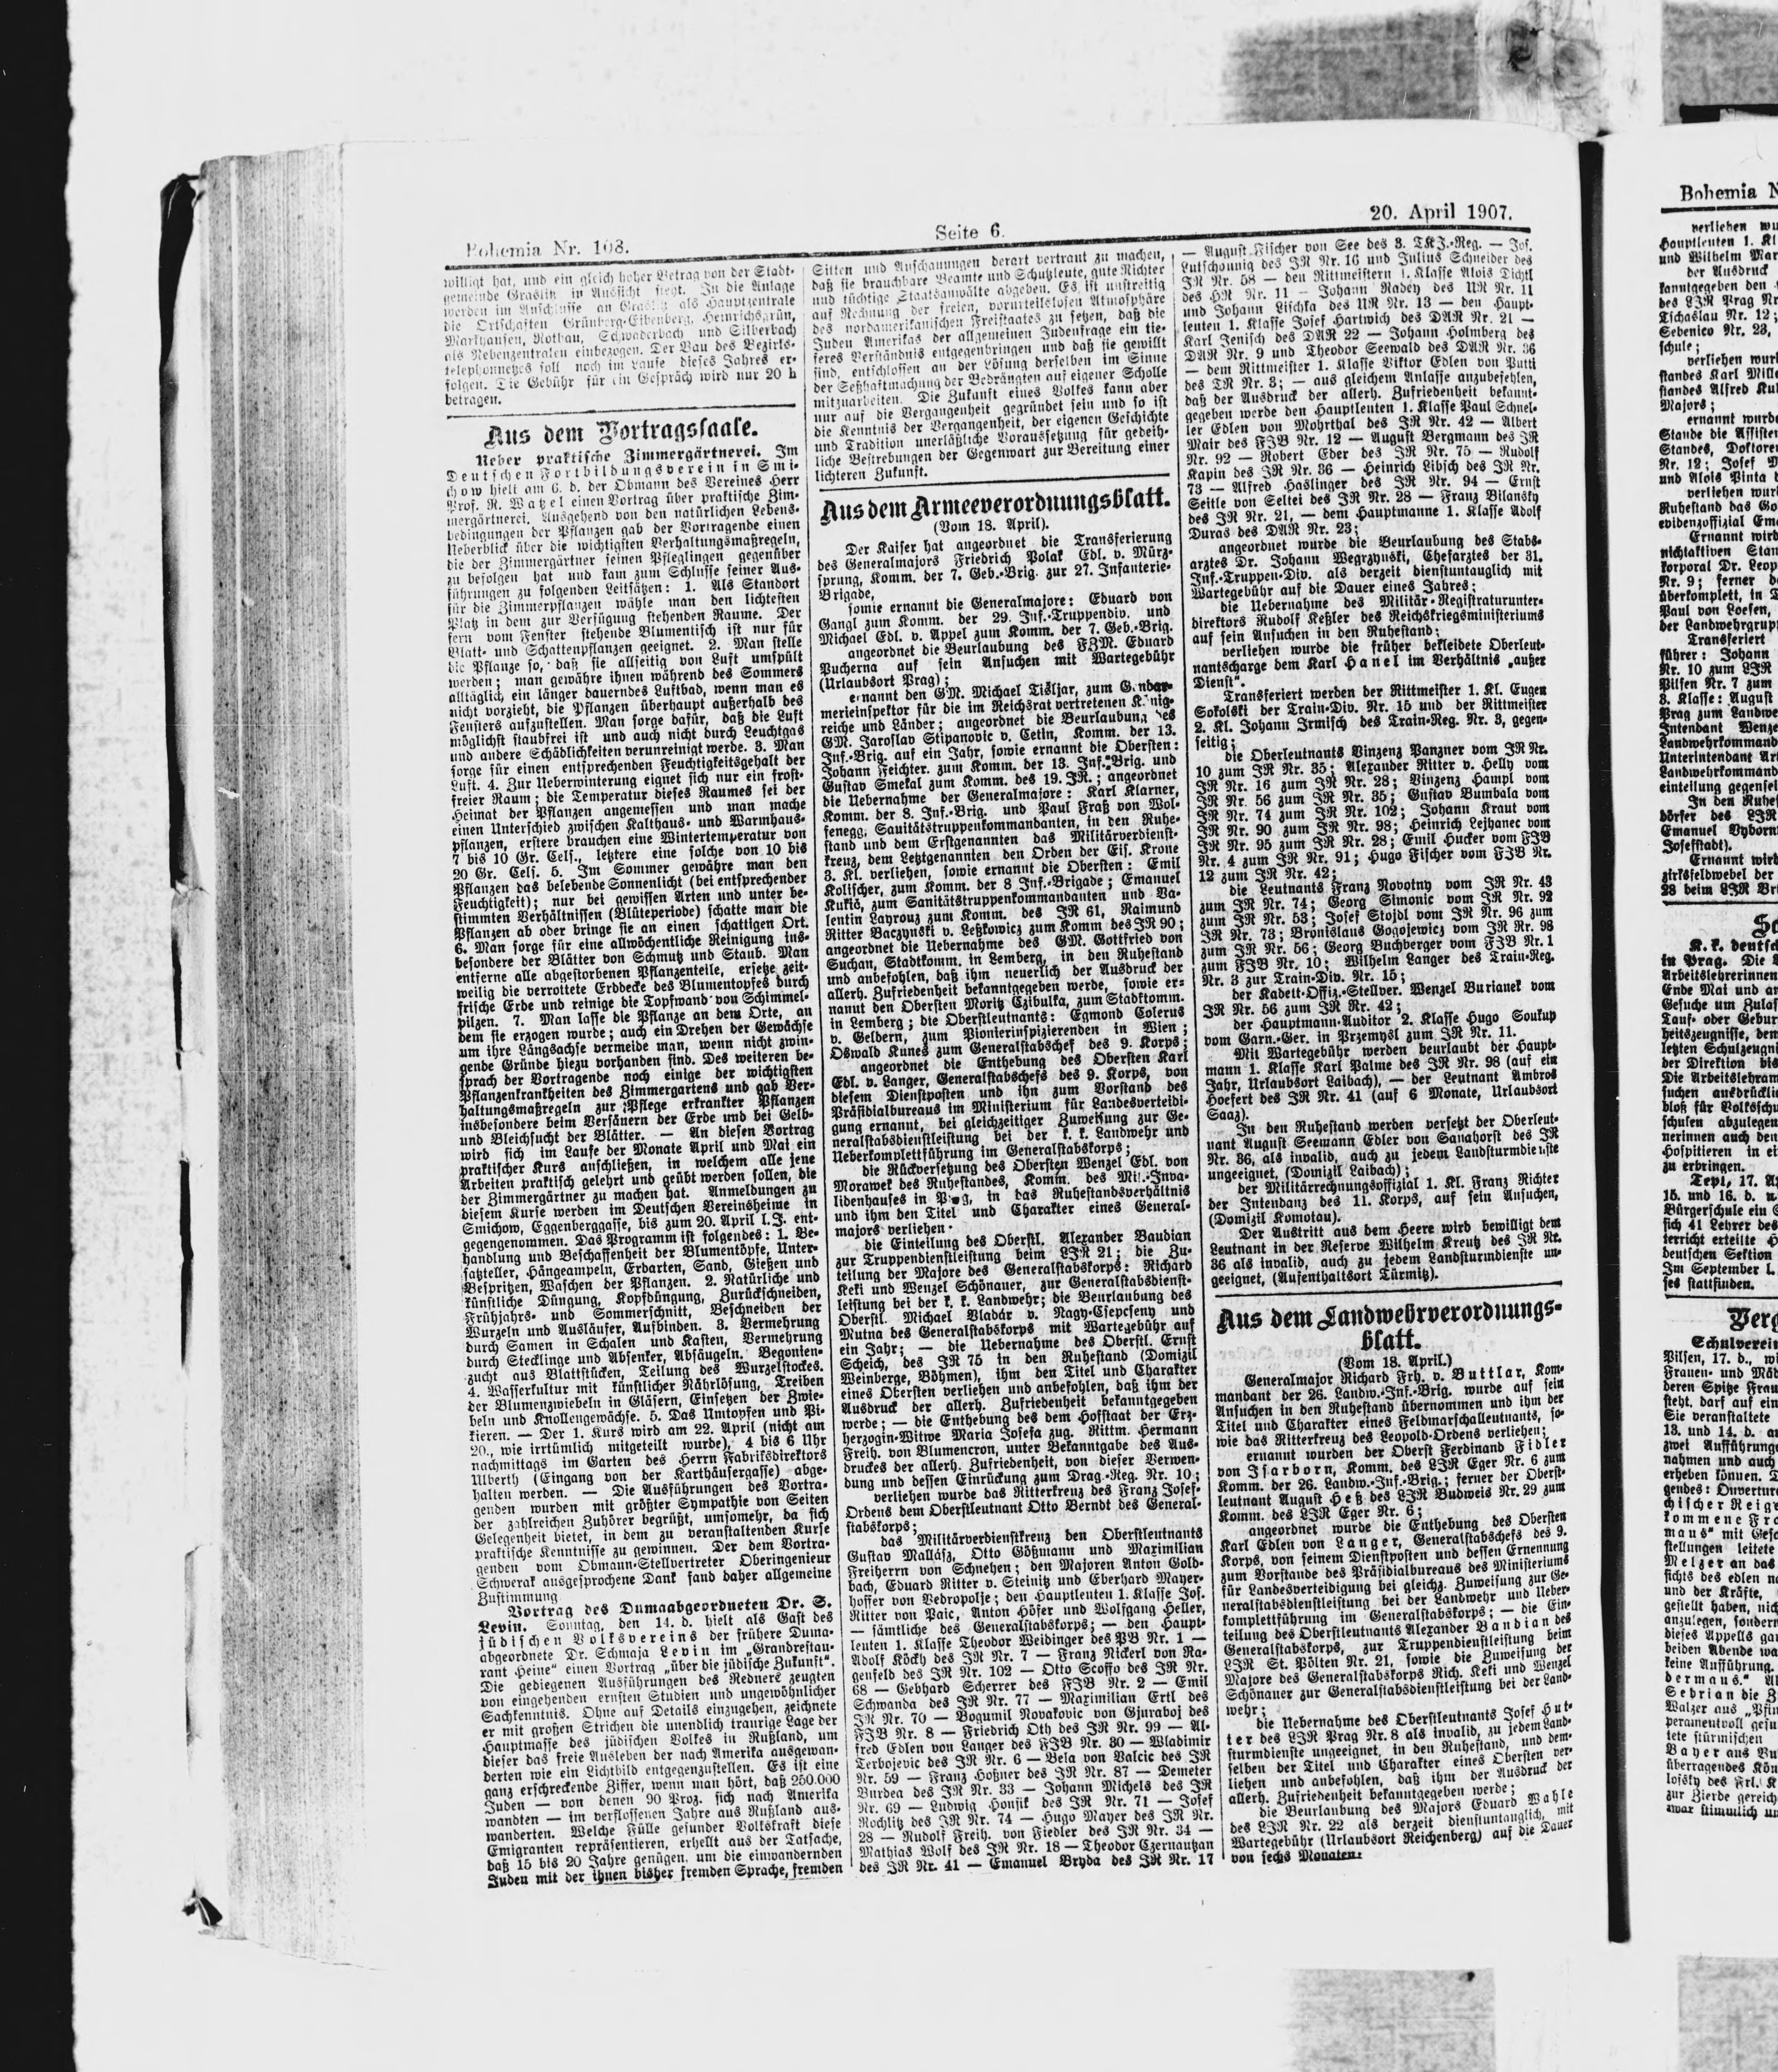 Bohemia Nr. 108.
Seite 6.
20. April 1907.
willigt hat, und ein gleich hoher Betrag von der Stadt-
gemeinde Graslitz in Aussicht steht. In die Anlage
werden im Anschlusse an Graslitz als Hauptzentrale
die Ortschaften Grünberg-Eibenberg, Heinrichsgrün,
Markhausen, Rothau, Schwaderbach und Silberbach
als Nebenzentralen einbezogen. Der Bau des Bezirks-
telephonnetzes soll noch im Laufe dieses Jahres er-
folgen. Die Gebühr für ein Gespräch wird nur 20 h
betragen.
Aus dem Vortragssaale.
Ueber praktische Zimmergärtnerei. Im
Deutschen Fortbildungsverein in Smi-
chow hielt am 6. d. der Obmann des Vereines Herr
Prof. R. Watzel einen Vortrag über praktische Zim-
mergärtnerei. Ausgehend von den natürlichen Lebens-
bedingungen der Pflanzen gab der Vortragende einen
Ueberblick über die wichtigsten Verhaltungsmaßregeln,
die der Zimmergärtner seinen Pfleglingen gegenüber
zu befolgen hat und kam zum Schlusse seiner Aus-
führungen zu folgenden Leitsätzen: 1. Als Standort
für die Zimmerpflanzen wähle man den lichtesten
Platz in dem zur Verfügung stehenden Raume. Der
fern vom Fenster stehende Blumentisch ist nur für
Blatt- und Schattenpflanzen geeignet. 2. Man stelle
die Pflanze so, daß sie allseitig von Luft umspült
werden; man gewähre ihnen während des Sommers
alltäglich ein länger dauerndes Luftbad, wenn man es
nicht vorzieht, die Pflanzen überhaupt außerhalb des
Fensters aufzustellen. Man sorge dafür, daß die Luft
möglichst staubfrei ist und auch nicht durch Leuchtgas
und andere Schädlichkeiten verunreinigt werde. 3. Man
sorge für einen entsprechenden Feuchtigkeitsgehalt der
Luft. 4. Zur Ueberwinterung eignet sich nur ein frost-
freier Raum; die Temperatur dieses Raumes sei der
Heimat der Pflanzen angemessen und man mache
einen Unterschied zwischen Kalthaus- und Warmhaus-
pflanzen, erstere brauchen eine Wintertemperatur von
7 bis 10 Gr. Cels., letztere eine solche von 10 bis
20 Gr. Cels. 5. Im Sommer gewähre man den
Pflanzen das belebende Sonnenlicht (bei entsprechender
Feuchtigkeit); nur bei gewissen Arten und unter be-
stimmten Verhältnissen (Blüteperiode) schatte man die
Pflanzen ab oder bringe sie an einen schattigen Ort.
6. Man sorge für eine allwöchentliche Reinigung ins-
besondere der Blätter von Schmutz und Staub. Man
entferne alle abgestorbenen Pflanzenteile, ersetze zeit-
weilig die verrottete Erddecke des Blumentopfes durch
frische Erde und reinige die Topfwand von Schimmel-
pilzen. 7. Man lasse die Pflanze an dem Orte, an
dem sie erzogen wurde; auch ein Drehen der Gewächse
um ihre Längsachse vermeide man, wenn nicht zwin-
gende Gründe hiezu vorhanden sind. Des weiteren be-
sprach der Vortragende noch einige der wichtigsten
Pflanzenkrankheiten des Zimmergartens und gab Ver-
haltungsmaßregeln zur Pflege erkrankter Pflanzen
insbesondere beim Versäuern der Erde und bei Gelb-
und Bleichsucht der Blätter. — An diesen Vortrag
wird sich im Laufe der Monate April und Mai ein
praktischer Kurs anschließen, in welchem alle jene
Arbeiten praktisch gelehrt und geübt werden sollen, die
der Zimmergärtner zu machen hat. Anmeldungen zu
diesem Kurse werden im Deutschen Vereinsheime in
Smichow, Eggenberggasse, bis zum 20. April l. J. ent-
gegengenommen. Das Programm ist folgendes: 1. Be-
handlung und Beschaffenheit der Blumentöpfe, Unter-
satzteller, Hängeampeln, Erdarten, Sand, Gießen und
Bespritzen, Waschen der Pflanzen. 2. Natürliche und
künstliche Düngung, Kopfdüngung, Zurückschneiden,
Frühjahrs- und Sommerschnitt, Beschneiden der
Wurzeln und Ausläufer, Aufbinden. 3. Vermehrung
durch Samen in Schalen und Kasten, Vermehrung
durch Stecklinge und Absenker, Absäugeln. Begonien-
zucht aus Blattstücken, Teilung des Wurzelstockes.
4. Wasserkultur mit künstlicher Nährlösung, Treiben
der Blumenzwiebeln in Gläsern, Einsetzen der Zwie-
beln und Knollengewächse. 5. Das Umtopfen und Pi-
kieren. — Der 1. Kurs wird am 22. April (nicht am
20., wie irrtümlich mitgeteilt wurde), 4 bis 6 Uhr
nachmittags im Garten des Herrn Fabriksdirektors
Ulberth (Eingang von der Karthäusergasse) abge-
halten werden. — Die Ausführungen des Vortra-
genden wurden mit größter Sympathie von Seiten
der zahlreichen Zuhörer begrüßt, umsomehr, da sich
Gelegenheit bietet, in dem zu veranstaltenden Kurse
praktische Kenntnisse zu gewinnen. Der dem Vortra-
genden vom Obmann-Stellvertreter Oberingenieur
Schwerak ausgesprochene Dank fand daher allgemeine
Zustimmung.
Vortrag des Dumaabgeordneten Dr. S.
Levin. Sonntag, den 14. d. hielt als Gast des
jüdischen Volksvereins der frühere Duma-
abgeordnete Dr. Schmaja Levin im „Grandrestau-
rant Heine" einen Vortrag „über die jüdische Zukunft".
Die gediegenen Ausführungen des Redners zeugten
von eingehenden ernsten Studien und ungewöhnlicher
Sachkenntnis. Ohne auf Details einzugehen, zeichnete
er mit großen Strichen die unendlich traurige Lage der
Hauptmasse des jüdischen Volkes in Rußland, um
dieser das freie Ausleben der nach Amerika ausgewan-
derten wie ein Lichtbild entgegenzustellen. Es ist eine
ganz erschreckende Ziffer, wenn man hört, daß 250.000
Juden — von denen 90 Proz. sich nach Amerika
wandten — im verflossenen Jahre aus Rußland aus-
wanderten. Welche Fülle gesunder Volkskraft diese
Emigranten repräsentieren, erhellt aus der Tatsache,
daß 15 bis 20 Jahre genügen, um die einwandernden
Juden mit der ihnen bisher fremden Sprache, fremden
Sitten und Anschauungen derart vertraut zu machen,
daß sie brauchbare Beamte und Schutzleute, gute Richter
und tüchtige Staatsanwälte abgeben. Es ist unstreitig
auf Rechnung der freien, vorurteilslosen Atmosphäre
des nordamerikanischen Freistaates zu setzen, daß die
Juden Amerikas der allgemeinen Judenfrage ein tie-
feres Verständnis entgegenbringen und daß sie gewillt
sind, entschlossen an der Lösung derselben im Sinne
der Seßhaftmachung der Bedrängten auf eigener Scholle
mitzuarbeiten. Die Zukunft eines Volkes kann aber
nur auf die Vergangenheit gegründet sein und so ist
die Kenntnis der Vergangenheit, der eigenen Geschichte
und Tradition unerläßliche Voraussetzung für gedeih-
liche Bestrebungen der Gegenwart zur Bereitung einer
lichteren Zukunft.
Aus dem Armeeverordnungsblatt.
(Vom 18. April).
Der Kaiser hat angeordnet die Transferierung
des Generalmajors Friedrich Polak Edl. v. Mürz-
sprung, Komm. der 7. Geb.-Brig. zur 27. Infanterie-
Brigade,
sowie ernannt die Generalmajore: Eduard von
Gangl zum Komm. der 29. Inf.-Truppendiv. und
Michael Edl. v. Appel zum Komm. der 7. Geb.-Brig.
angeordnet die Beurlaubung des FZM. Eduard
Pucherna auf sein Ansuchen mit Wartegebühr
(Urlaubsort Prag);
ernannt den GM. Michael Tišljar, zum Gendar-
merieinspektor für die im Reichsrat vertretenen König-
reiche und Länder; angeordnet die Beurlaubung des
GM. Jaroslav Stipanovic v. Cetin, Komm. der 13.
Inf.-Brig. auf ein Jahr, sowie ernannt die Obersten:
Johann Feichter. zum Komm. der 13. Inf.-Brig. und
Gustav Smekal zum Komm. des 19. IR.; angeordnet
die Uebernahme der Generalmajore: Karl Klarner,
Komm. der 8. Inf.-Brig. und Paul Fraß von Wol-
fenegg, Sanitätstruppenkommandanten, in den Ruhe-
stand und dem Erstgenannten das Militärverdienst-
kreuz, dem Letztgenannten den Orden der Eis. Krone
3. Kl. verliehen, sowie ernannt die Obersten: Emil
Kolischer, zum Komm. der 8 Inf.-Brigade; Emanuel
Kukić, zum Sanitätstruppenkommandanten und Va-
lentin Layrouz zum Komm. des IR 61, Raimund
Ritter Baczynski v. Leßkowicz zum Komm des IR 90;
angeordnet die Uebernahme des GM. Gottfried von
Suchan, Stadtkomm. in Lemberg, in den Ruhestand
und anbefohlen, daß ihm neuerlich der Ausdruck der
allerh. Zufriedenheit bekanntgegeben werde, sowie er-
nannt den Obersten Moritz Czibulka, zum Stadtkomm.
in Lemberg; die Oberstleutnants: Egmond Colerus
v. Geldern, zum Pionierinspizierenden in Wien;
Oswald Kunes zum Generalstabschef des 9. Korps;
angeordnet die Enthebung des Obersten Karl
Edl. v. Langer, Generalstabschefs des 9. Korps, von
diesem Dienstposten und ihn zum Vorstand des
Präsidialbureaus im Ministerium für Landesverteidi-
gung ernannt, bei gleichzeitiger Zuweisung zur Ge-
neralstabsdienstleistung bei der k. k. Landwehr und
Ueberkomplettführung im Generalstabskorps;
die Rückversetzung des Obersten Wenzel Edl. von
Morawek des Ruhestandes, Komm. des Mil.-Inva-
lidenhauses in Prag, in das Ruhestandsverhältnis
und ihm den Titel und Charakter eines General-
majors verliehen.
die Einteilung des Oberstl. Alexander Baudian
zur Truppendienstleistung beim LIR 21; die Zu-
teilung der Majore des Generalstabskorps: Richard
Keki und Wenzel Schönauer, zur Generalstabsdienst-
leistung bei der k. k. Landwehr; die Beurlaubung des
Oberstl. Michael Vladár v. Nagy-Csepcseny und
Mutna des Generalstabskorps mit Wartegebühr auf
ein Jahr; — die Uebernahme des Oberstl. Ernst
Scheich, des IR 75 in den Ruhestand (Domizil
Weinberge, Böhmen), ihm den Titel und Charakter
eines Obersten verliehen und anbefohlen, daß ihm der
Ausdruck der allerh. Zufriedenheit bekanntgegeben
werde; — die Enthebung des dem Hofstaat der Erz-
herzogin-Witwe Maria Josefa zug. Rittm. Hermann
Freih. von Blumencron, unter Bekanntgabe des Aus-
druckes der allerh. Zufriedenheit, von dieser Verwen-
dung und dessen Einrückung zum Drag.-Reg. Nr. 10;
verliehen wurde das Ritterkreuz des Franz Josef-
Ordens dem Oberstleutnant Otto Berndt des General-
stabskorps;
das Militärverdienstkreuz den Oberstleutnants
Gustav Mallász, Otto Gößmann und Maximilian
Freiherrn von Schnehen; den Majoren Anton Golb-
bach, Eduard Ritter v. Steinitz und Eberhard Mayer-
hoffer von Vedropolje; den Hauptleuten 1. Klasse Jos.
Ritter von Paic, Anton Höfer und Wolfgang Heller,
— sämtliche des Generalstabskorps; — den Haupt-
leuten 1. Klasse Theodor Weidinger des PB Nr. 1 —
Adolf Köckh des IR Nr. 7 — Franz Nickerl von Ra-
genfeld des IR Nr. 102 — Otto Scoffo des IR Nr.
68 — Gebhard Scherrer des FJB Nr. 2 — Emil
Schwanda des IR Nr. 77 — Maximilian Ertl des
IR Nr. 70 — Bogumil Novakovic von Gjuraboj des
FJB Nr. 8 — Friedrich Oth des IR Nr. 99 — Al-
fred Edlen von Langer des FJB Nr. 30 — Wladimir
Terbojevic des IR Nr. 6 — Bela von Balcic des IR
Nr. 59 — Franz Hoßner des IR Nr. 87 — Demeter
Burdea des IR Nr. 33 — Johann Michels des IR
Nr. 69 — Ludwig Honsik des IR Nr. 71 — Josef
Rochlitz des IR Nr. 74 — Hugo Mayer des IR Nr.
28 — Rudolf Freih. von Fiedler des IR Nr. 34 —
Mathias Wolf des IR Nr. 18 — Theodor Czernautzan
des IR Nr. 41 — Emanuel Bryda des IR Nr. 17
— August Fischer von See des 3. TKJ.-Reg. — Jos.
Lutschounig des IR Nr. 16 und Julius Schneider des
IR Nr. 58 — den Rittmeistern 1. Klasse Alois Dichtl
des HR Nr. 11 — Johann Radey des UR Nr. 11
und Johann Lischka des UR Nr. 13 — den Haupt-
leuten 1. Klasse Josef Hartwich des DAR Nr. 21 —
Karl Jenisch des DAR 22 — Johann Holmberg des
DAR Nr. 9 und Theodor Seewald des DAR Nr. 36
— dem Rittmeister 1. Klasse Viktor Edlen von Putti
des TR Nr. 3; — aus gleichem Anlasse anzubefehlen,
daß der Ausdruck der allerh. Zufriedenheit bekannt-
gegeben werde den Hauptleuten 1. Klasse Paul Schnel-
ler Edlen von Mohrthal des IR Nr. 42 — Albert
Mair des FJB Nr. 12 — August Bergmann des IR
Nr. 92 — Robert Eber des IR Nr. 75 — Rudolf
Kapin des IR Nr. 36 — Heinrich Libsch des IR Nr.
73 — Alfred Haslinger des IR Nr. 94 — Ernst
Seitle von Seltei des IR Nr. 28 — Franz Bilansky
des IR Nr. 21, — dem Hauptmanne 1. Klasse Adolf
Duras des DAR Nr. 23;
angeordnet wurde die Beurlaubung des Stabs-
arztes Dr. Johann Wegrzynski, Chefarztes der 31.
Inf.-Truppen-Div. als derzeit dienstuntauglich mit
Wartegebühr auf die Dauer eines Jahres;
die Uebernahme des Militär-Registraturunter-
direktors Rudolf Keßler des Reichskriegsministeriums
auf sein Ansuchen in den Ruhestand;
verliehen wurde die früher bekleidete Oberleut-
nantscharge dem Karl Hanel im Verhältnis „außer
Dienst".
Transferiert werden der Rittmeister 1. Kl. Eugen
Sokolski der Train-Div. Nr. 15 und der Rittmeister
2. Kl. Johann Irmisch des Train-Reg. Nr. 3, gegen-
seitig;
die Oberleutnants Vinzenz Panzner vom IR Nr.
10 zum IR Nr. 35; Alexander Ritter v. Helly vom
IR Nr. 16 zum IR Nr. 28; Vinzenz Hampl vom
IR Nr. 56 zum IR Nr. 35; Gustav Bumbala vom
IR Nr. 74 zum IR Nr. 102; Johann Kraut vom
IR Nr. 90 zum IR Nr. 98; Heinrich Lejhanec vom
IR Nr. 95 zum IR Nr. 28; Emil Hucker vom FJB
Nr. 4 zum IR Nr. 91; Hugo Fischer vom FJB Nr.
12 zum IR Nr. 42;
die Leutnants Franz Novotny vom IR Nr. 43
zum IR Nr. 74; Georg Simonic vom IR Nr. 92
zum IR Nr. 53; Josef Stojdl vom IR Nr. 96 zum
IR Nr. 73; Bronislaus Gogojewicz vom IR Nr. 98
zum IR Nr. 56; Georg Buchberger vom FJB Nr. 1
zum FJB Nr. 10; Wilhelm Langer des Train-Reg.
Nr. 3 zur Train-Div. Nr. 15;
der Kadett-Offiz.-Stellver. Wenzel Burianek vom
IR Nr. 56 zum IR Nr. 42;
der Hauptmann-Auditor 2. Klasse Hugo Soukup
vom Garn.-Ger. in Przemysl zum IR Nr. 11.
Mit Wartegebühr werden beurlaubt der Haupt-
mann 1. Klasse Karl Palme des IR Nr. 98 (auf ein
Jahr, Urlaubsort Laibach), — der Leutnant Ambros
Hoefert des IR Nr. 41 (auf 6 Monate, Urlaubsort
Saaz).
In den Ruhestand werden versetzt der Oberleut-
nant August Seemann Edler von Sanahorst des IR
Nr. 36, als invalid, auch zu jedem Landsturmdienste
ungeeignet, (Domizil Laibach);
der Militärrechnungsoffizial 1. Kl. Franz Richter
der Intendanz des 11. Korps, auf sein Ansuchen,
(Domizil Komotau).
Der Austritt aus dem Heere wird bewilligt dem
Leutnant in der Reserve Wilhelm Kreutz des IR Nr.
36 als invalid, auch zu jedem Landsturmdienste un-
geeignet, (Aufenthaltsort Türmitz).
Aus dem Landwehrverordnungs-
blatt.
(Vom 18. April.)
Generalmajor Richard Frh. v. Buttlar, Kom-
mandant der 26. Landw.-Inf.-Brig. wurde auf sein
Ansuchen in den Ruhestand übernommen und ihm der
Titel und Charakter eines Feldmarschalleutnants, so-
wie das Ritterkreuz des Leopold-Ordens verliehen;
ernannt wurden der Oberst Ferdinand Fidler
von Isarborn, Komm. des LIR Eger Nr. 6 zum
Komm. der 26. Landw.-Inf.-Brig.; ferner der Oberst-
leutnant August Heß des LIR Budweis Nr. 29 zum
Komm. des LIR Eger Nr. 6;
angeordnet wurde die Enthebung des Obersten
Karl Edlen von Langer, Generalstabschefs des 9.
Korps, von seinem Dienstposten und dessen Ernennung
zum Vorstande des Präsidialbureaus des Ministeriums
für Landesverteidigung bei gleichz. Zuweisung zur Ge-
neralstabsdienstleistung bei der Landwehr und Ueber-
komplettführung im Generalstabskorps; — die Ein-
teilung des Oberstleutnants Alexander Bandian des
Generalstabskorps, zur Truppendienstleistung beim
LIR St. Pölten Nr. 21, sowie die Zuweisung der
Majore des Generalstabskorps Rich. Keki und Wenzel
Schönauer zur Generalstabsdienstleistung bei der Land-
wehr;
die Uebernahme des Oberstleutnants Josef Hut-
ter des LIR Prag Nr. 8 als invalid, zu jedem Land-
sturmdienste ungeeignet, in den Ruhestand, und dem-
selben der Titel und Charakter eines Obersten ver-
liehen und anbefohlen, daß ihm der Ausdruck der
allerh. Zufriedenheit bekanntgegeben werde;
die Beurlaubung des Majors Eduard Wahle
des LIR Nr. 22 als derzeit dienstuntauglich, mit
Wartegebühr (Urlaubsort Reichenberg) auf die Dauer
von sechs Monaten.
Bohemia N